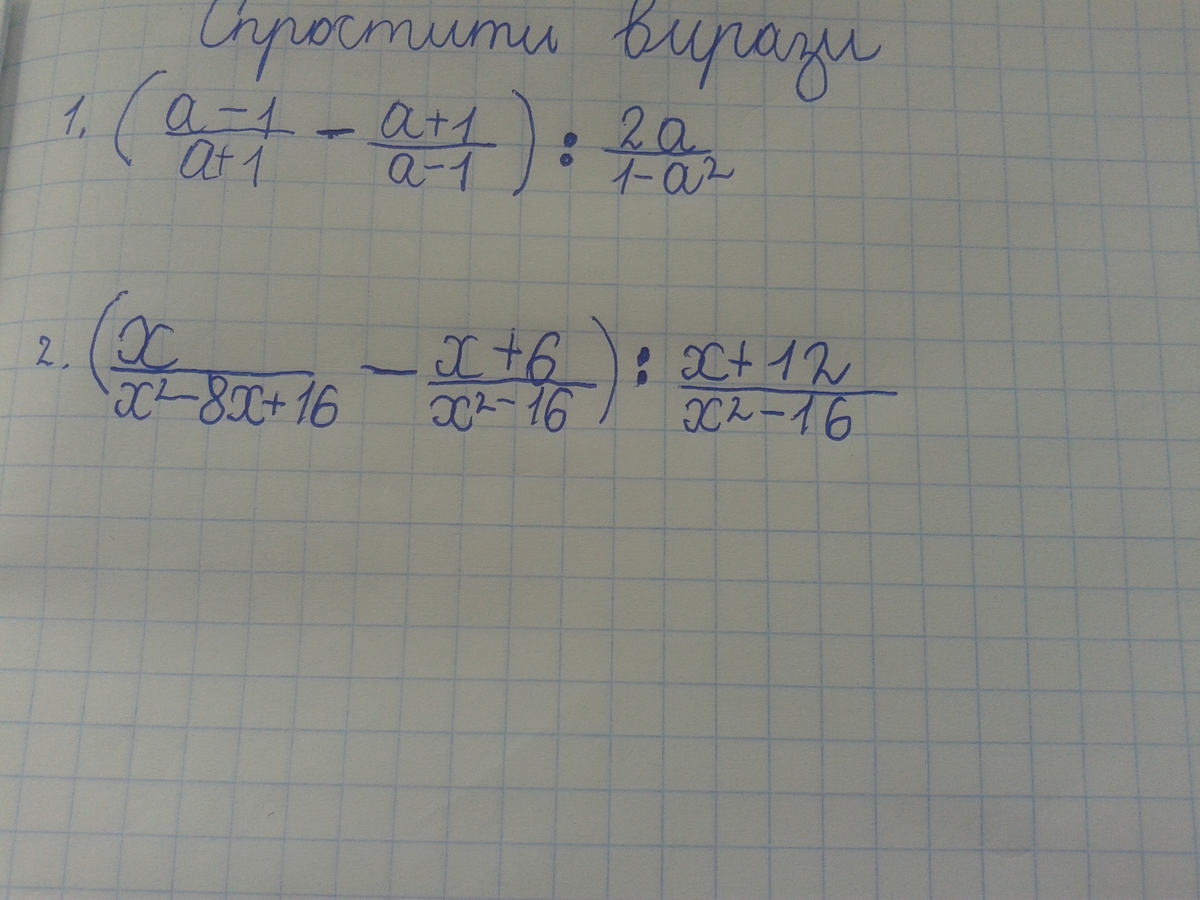 Спростити вирази
1. (a-1/a+1 - a+1/a-1) : 2a/1-a²
2. (x/x²-8x+16 - x+6/x²-16) : x+12/x²-16